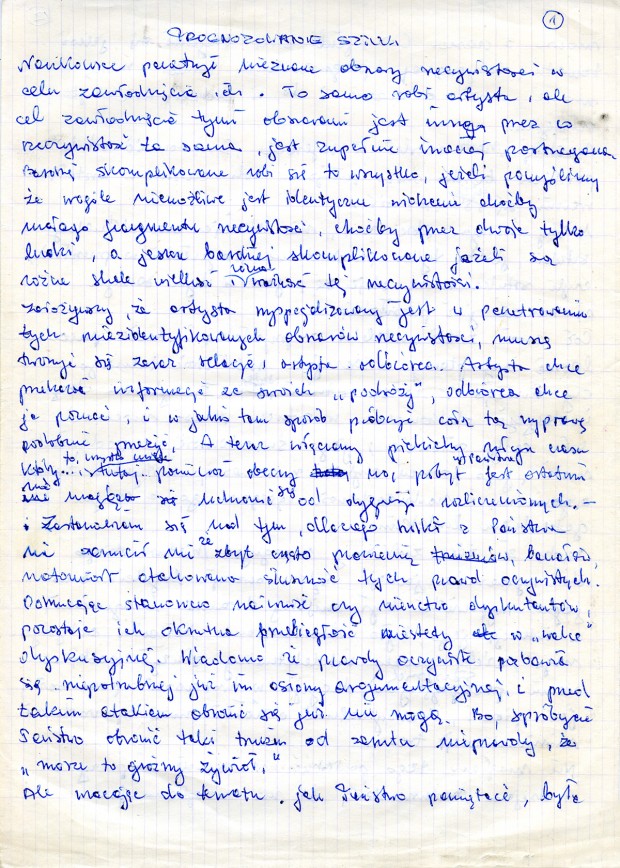 1
PROGNOZOWANIE SZTUKI
Naukowiec penetruje nieznane obszary rzeczywistości w
celu zawłodnięcia ich. To samo robi artysta, ale
cel zawłodnięcia tymi obszarami jest inny, przez co
rzeczywistość ta sama, jest zupełnie inaczej postrzegana.
Bardziej skomplikowane robi się to wszystko, jeżeli pomyślimy
że wogóle niemożliwe jest identyczne widzenie choćby
małego fragmentu rzeczywistości, choćby przez dwoje tylko
ludzi, a jeszcze bardziej skomplikowane jeżeli są
różne skale wielkości i różna trwałość tej rzeczywistości.
Założywszy, że artysta wyspecjalizowany jest w penetrowaniu
tych niezidentyfikowanych obszarów rzeczywistości, muszą
tworzyć się zaraz relacje, artysta - odbiorca. Artysta chce
przekazać informacje ze swoich „podróży", odbiorca chce
je poznać, i w jakiś tam sposób próbuje całą tę wyprawę
podobnie przeżyć. A teraz włączamy
to, ponieważ obecny mój pobyt jest ostatni
nie mogę się uchronić od dygresji rozlicznionych. –
Zastanawiam się nad tym, dlaczego nikt z Państwa
nie zarzucił mi że zbyt często banałów,
natomiast atakowano słuszność tych prawd oczywistych.
Odrzucając stanowczo naiwność czy dyskutantów,
pozostaje ich okrutna przebiegłość niestety w „walce"
dyskusyjnej. Wiadomo że prawdy oczywiste pozbawia
się niepotrzebnej już im osłony argumentacyjnej i przed
takim atakiem obronić się już nie mogą. Bo, spróbujcie
Państwo obronić taki truizm od zarzutu nieprawdy, że
„morze to groźny żywioł."
Ale wracając do tematu. jak Państwo pamiętacie, była